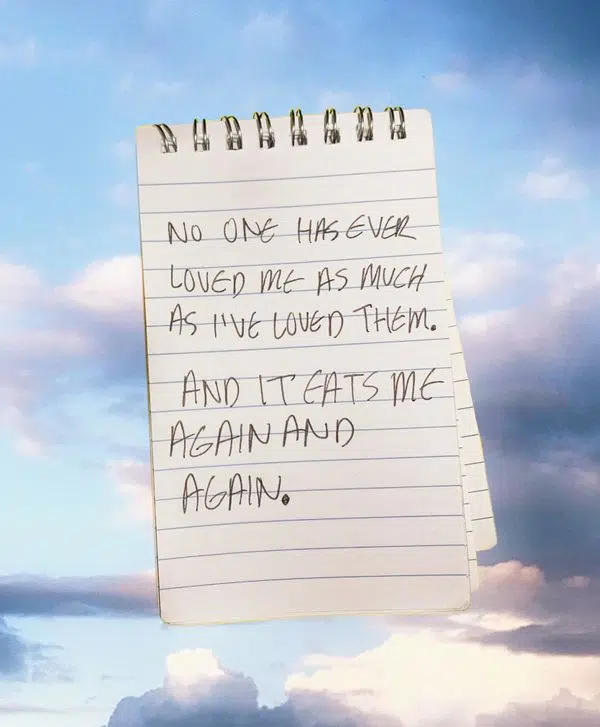 NO ONE HAS EVER
LOVED ME AS MUCH
AS I'VE LOVED THEM.
AND IT EATS ME
AGAIN AND
AGAIN.